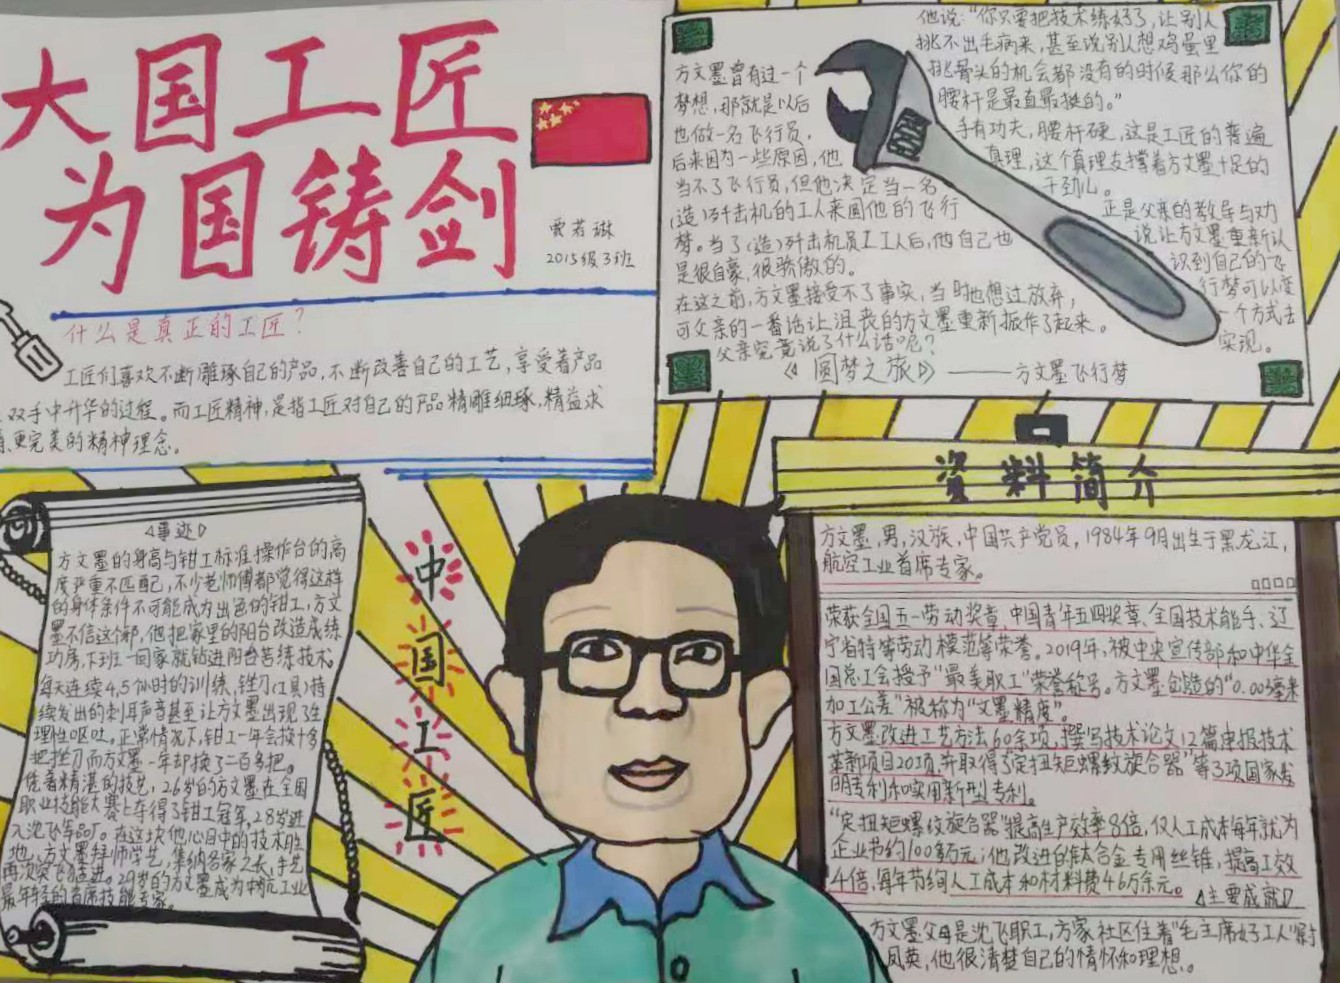 大国工匠
为国铸剑
贾若琳
2015级3班
什么是真正的工匠？
工匠们喜欢不断雕琢自己的产品，不断改善自己的工艺，享受着产品
双手中升华的过程。而工匠精神，是指工匠对自己的产品精雕细琢，精益求
更完美的精神理念。
方文墨曾有过一个
梦想，那就是以后
也做一名飞行员，
后来因为一些原因，他
当不了飞行员，但他决定当一名
（造）歼击机的工人来圆他的飞行
梦。当了（造）歼击机员工工人后，他自己也
是很自豪，很骄傲的。
在这之前，方文墨接受不了事实，当时也想过放弃，
可父亲的一番话让沮丧的方文墨重新振作了起来。
父亲究竟说了什么话呢？
他说：“你只要把技术练好了，让别人
挑不出毛病来，甚至说别人想鸡蛋里
挑骨头的机会都没有的时候那么你的
腰杆是最直最挺的。”
手有功夫，腰杆硬，这是工匠的普遍
真理，这个真理支撑着方文墨十足的
干劲儿。
正是父亲的教导与劝
说让方文墨重新认
识到自己的飞
行梦可以变
一个方式去
实现。
《圆梦之旅》——方文墨飞行梦
事迹
方文墨的身高与钳工标准操作台的高
度严重不匹配，不少老师傅都觉得这样
的身体条件不可能成为出色的钳工，方文
墨不信这个邪，他把家里的阳台改造成练
功房，下班一回家就钻进阳台苦练技术。
每天连续4,5个小时的训练，锉刀（工具）持
续发出的刺耳声音甚至让方文墨出现了生
理性呕吐。正常情况下，钳工一年会换十多
把挫刀而方文墨一年却换了二百多把。
凭着精湛的技艺，26岁的方文墨在全国
职业技能大赛上夺得了钳工冠军，28岁进
入沈飞军品厂。在这块他心目中的技术胜
地，方文墨拜师学艺，集纳各家之长，手艺
再次突飞猛进。29岁的方文墨成为中航工业
最年轻的首席技能专家。
中
国
工
匠
资料简介
方文墨，男，汉族，中国共产党员，1984年9月出生于黑龙江，
航空工业首席专家。
荣获全国五一劳动奖章、中国青年五四奖章、全国技术能手、辽
宁省特等劳动模范等荣誉。2019年，被中央宣传部和中华全
国总工会授予“最美职工”荣誉称号。方文墨创造的“0.003毫米
加工公差”被称为“文墨精度”。
方文墨改进工艺方法60余项，撰写技术论文12篇申报技术
革新项目20项，并取得了定扭矩螺纹旋合器”等3项国家发
明专利和实用新型专利。
“定扭矩螺纹旋合器”提高生产效率8倍，仅人工成本每年就为
企业节约100多万元；他改进的钛合金专用丝锥，提高工效
4倍，每年节约人工成本和材料费46万余元。
主要成就
方文墨父母是沈飞职工，方家社区住着“毛主席好工人”尉
凤英，他很清楚自己的情怀和理想。